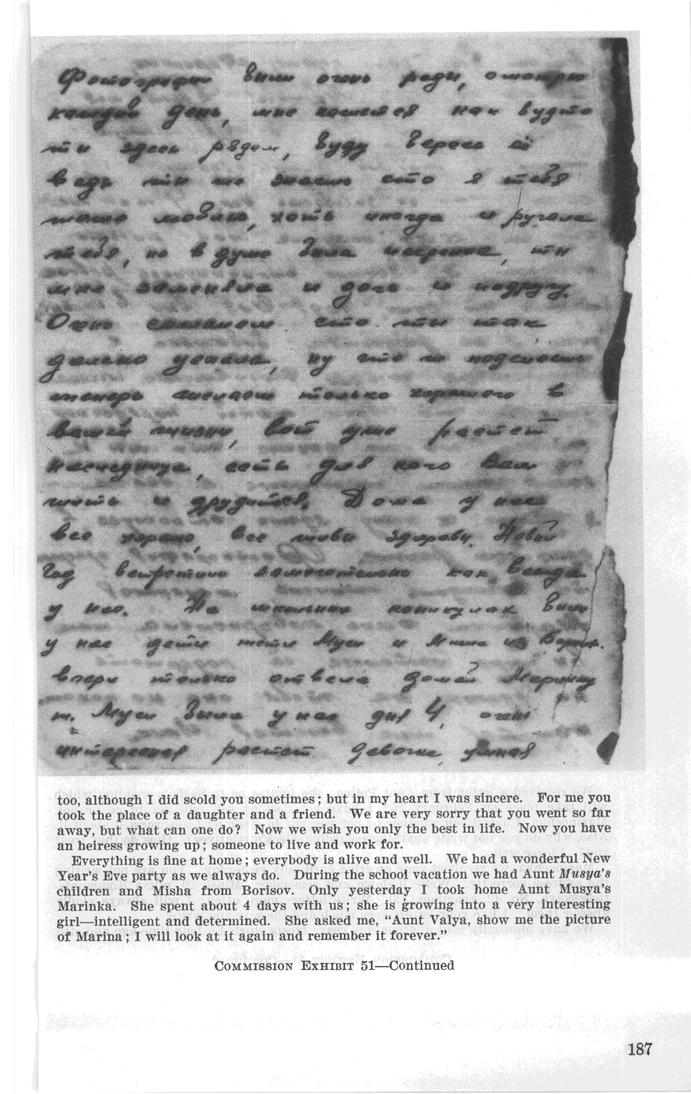 Фотографии были очень рады, смотрю
каждый день, мне кажется как будто
ты здесь рядом, буду верость й
ведь ты не знаешь что я тебя
тоже люблю, хоть иногда и ругала
тебя, но в душе была искренна, ты
мне заменяла и дочь и подругу.
Очень сожалеем что ты так
далеко уехала, ну что ж поделаешь
теперь желаем только хорошего в
вашей жизни, вот уже растет
наследница, есть для кого Вам
жить и трудится. Дома у нас
все хорошо, все живы здоровы. Новый
год встретили замечательно как всегда
у нас. На школьных каникулах были
у нас дети тети Муси и Миша из Борис.
вчера только отвела домой Маринку
т. Муси была у нас дня 4, очень
интересная растет девочка, умная
too, although I did scold you sometimes; but in my heart I was sincere. For me you
took the place of a daughter and a friend. We are very sorry that you went so far
away, but what can one do? Now we wish you only the best in life. Now you have
an heiress growing up; someone to live and work for.
Everything is fine at home; everybody is alive and well. We had a wonderful New
Year's Eve party as we always do. During the school vacation we had Aunt Musya's
children and Misha from Borisov. Only yesterday I took home Aunt Musya's
Marinka. She spent about 4 days with us; she is growing into a very interesting
girl—intelligent and determined. She asked me, "Aunt Valya, show me the picture
of Marina; I will look at it again and remember it forever."
COMMISSION EXHIBIT 51—Continued
187